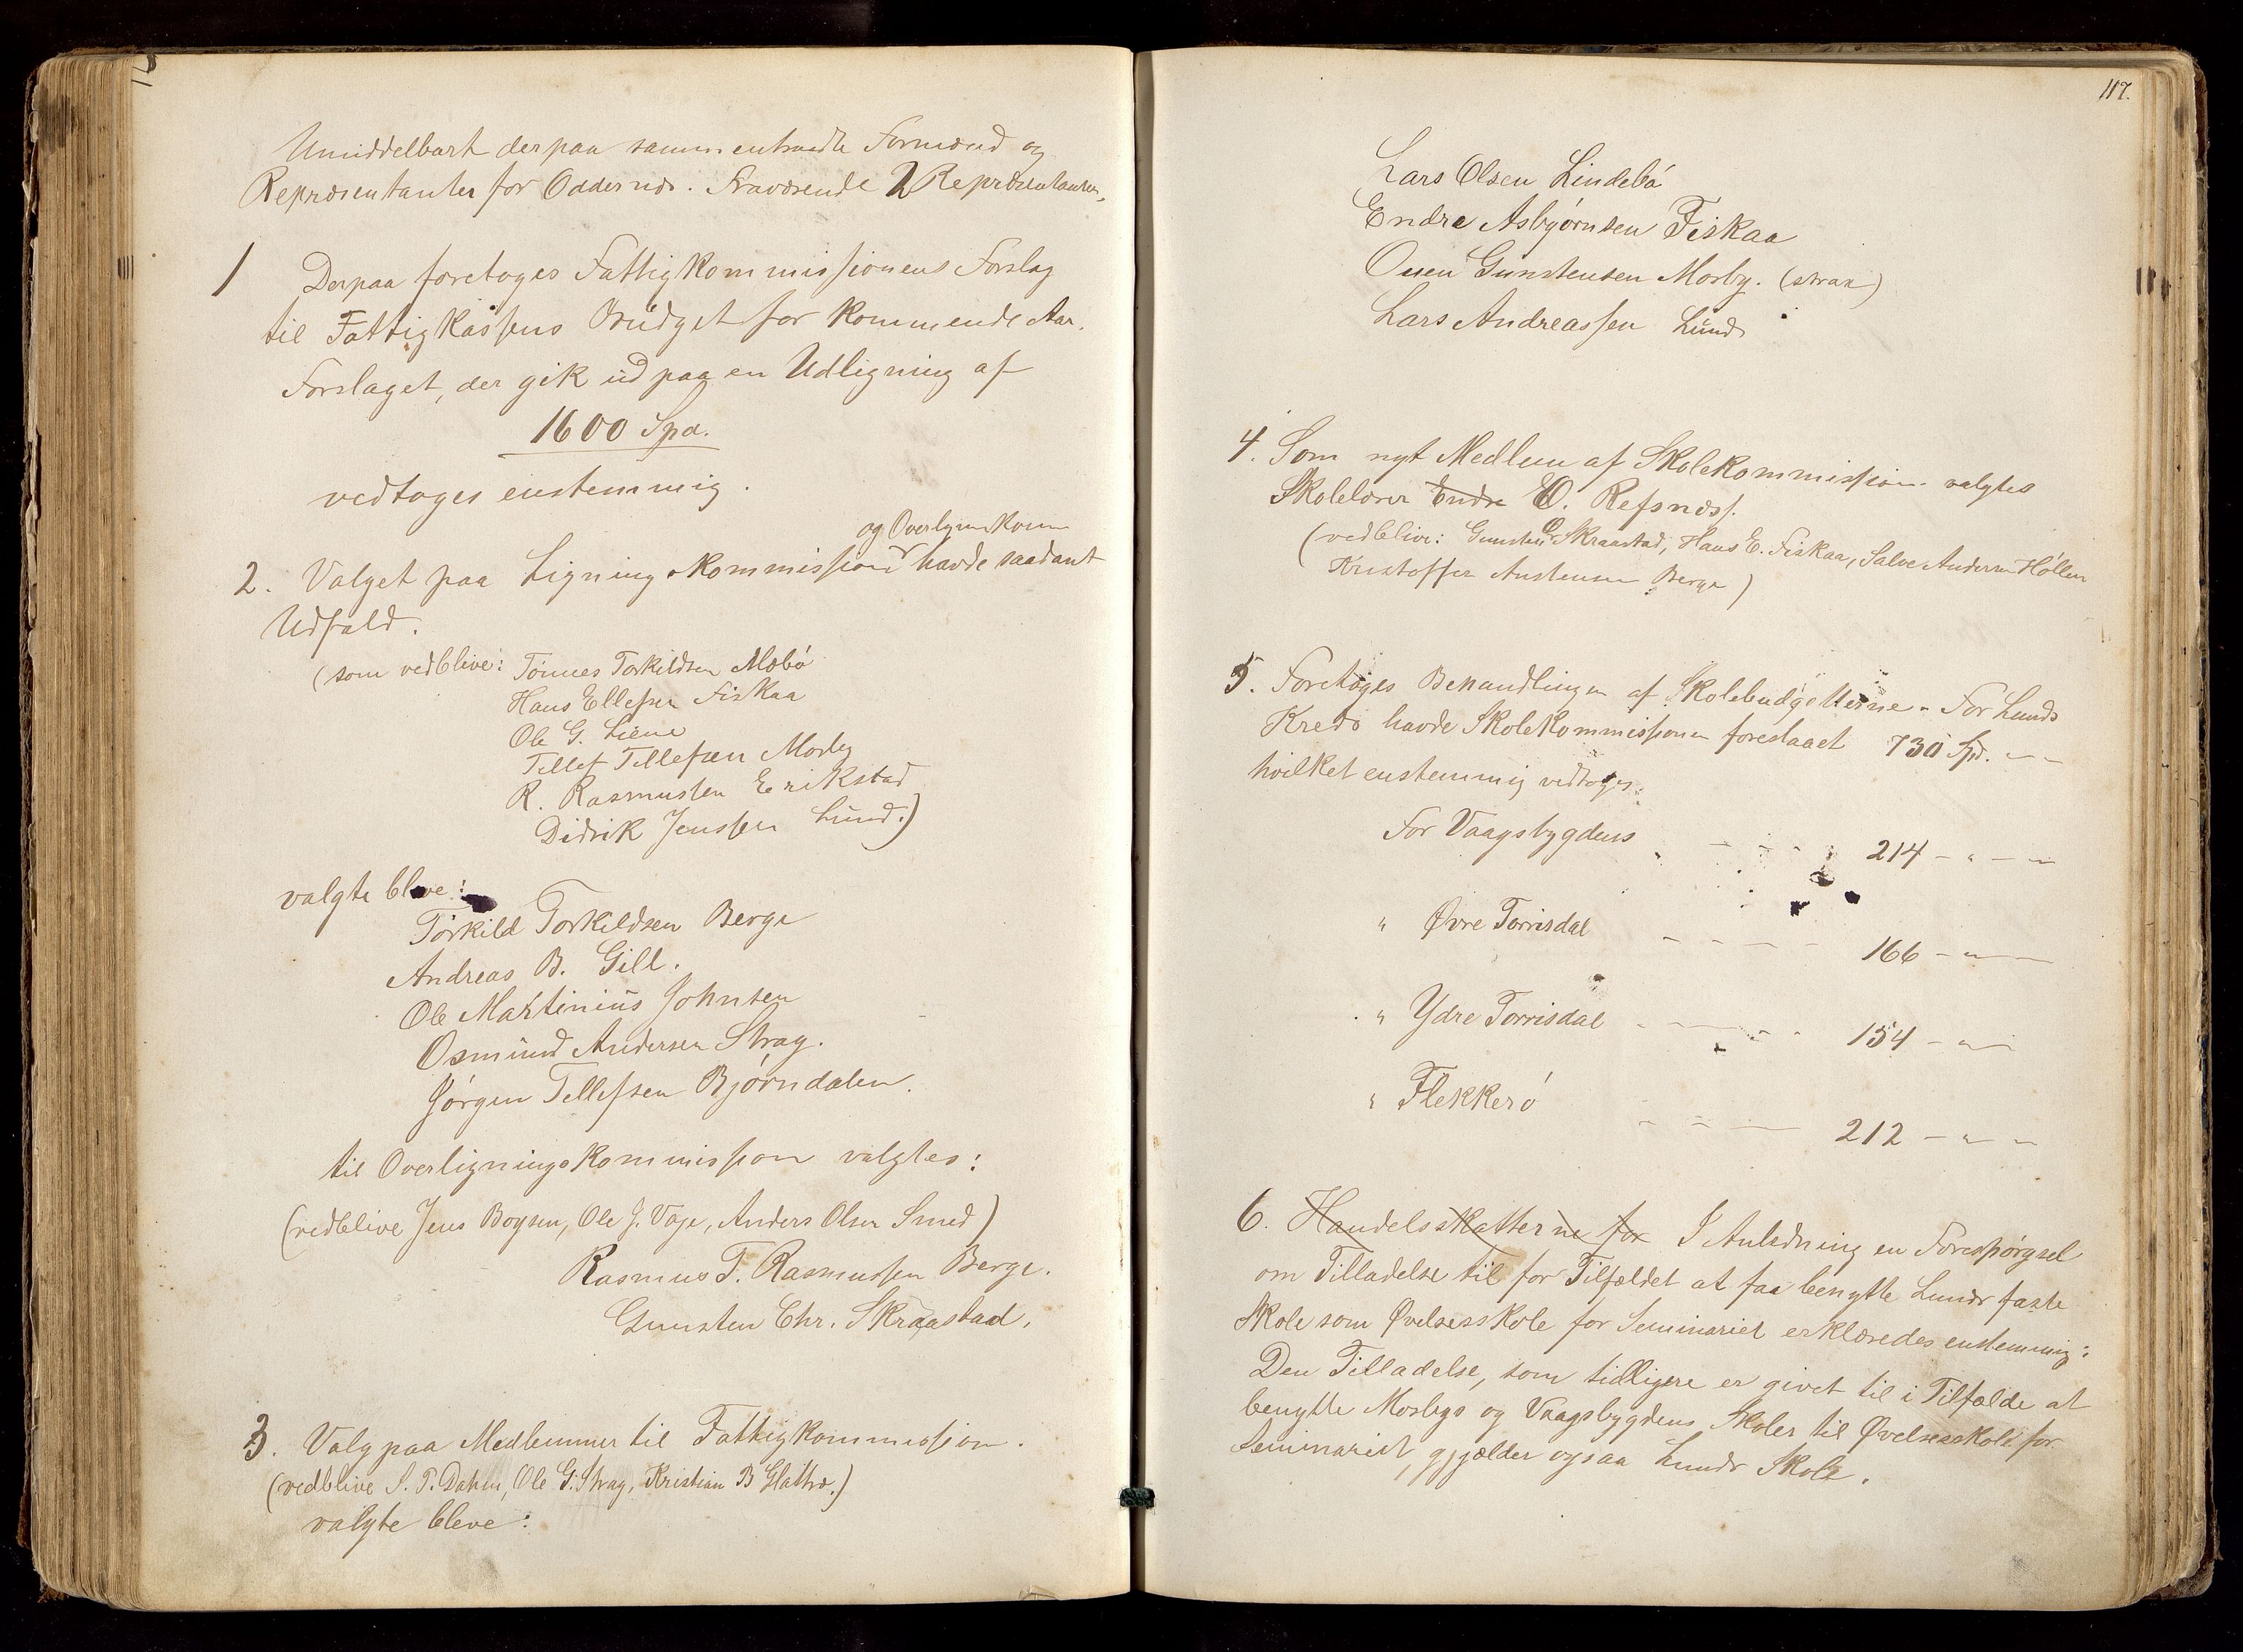 Umiddelbart derpaa sammentraadte Formænd og
Repræsentanter for Oddernes. Fraværende 2 Repræsentanter.
1 Derpaa foretoges Fattigkommissionens Forslag
til Fattigkassens Büdget for kommende Aar.
Forslaget, der gik üd paa en Udligning af
1600 Spd.
vedtoges enstemmig.
og Overlignskom
2. Valget paa Ligningskommission havde saadant
Udfald.
(som vedblive: Tønnes Torkildsen Mebø
Hans Ellefsen Fiskaa
Ole G. Liene
Tellef Tellefsen Mosby
R. Rasmussen Erikstad
Didrik Jenssen Lund.)
valgte bleve:
Torkild Torkildsen Berge
Andreas B. Gill.
Ole Martinius Johnsen
Osmünd Andersen Strag.
Jørgen Tellefsen Bjørndalen.
til Overligningskommission valgtes:
(vedblive Jens Boysen, Ole J. Voje, Anders Olsen Smed)
Rasmus T. Rasmussen Berge.
Gunsten Chr. Skraastad.
3. Valg paa Medlemmer til Fattigkommission.
(vedblive S. T. Dahm, Ole G. Strag, Kristian B Glattre.)
valgte bleve:
117.
Lars Olsen Lindebø
Endre Asbjørnsen Fiskaa
Ouen Gunstensen Mosby. (strax)
Lars Andreassen Lünd
4. Som nyt Medlem af Skolekommission valgtes
Skolelærer Endre O. Refsness.
(vedblive: Gunsten O Skraastad, Hans E. Fiskaa, Salve Andersen Høllen
Kristoffer Austensen Berge)
5. Foretoges Behandlingen af Skolebudgetterne. For Lunds
Kreds havde Skolekommissionen foreslaaet 730 Spd. - -
hvilket enstemmig vedtoges.
For Vaagsbygdens - - - - 214 - " - -
" Øvre Torrisdal - - - - 166 - " -
" Ydre Torrisdal - - - - 154 - " -
" Flekkerø - - - 212 - " -
6. Handelsskatterne for I Anledning en Forespørgsel
om Tilladelse til for Tilfældet at faa benytte Lunds faste
Skole som Øvelsesskole for Seminariet erklæredes enstemmig:
Den Tilladelse, som tidligere er givet til i Tilfælde at
benytte Mosbys og Vaagsbygdens Skoler til Øvelsesskole for
Seminariet, gjælder ogsaa Lunds Skole.